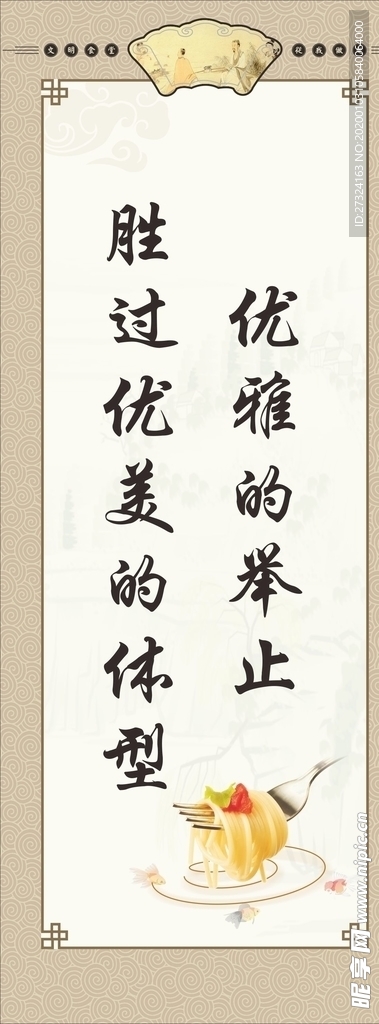 文明食堂 从我做
优雅的举止
胜过优美的体型
ID:27324163 NO:20200103105840064000
昵享网 www.nipic.cn